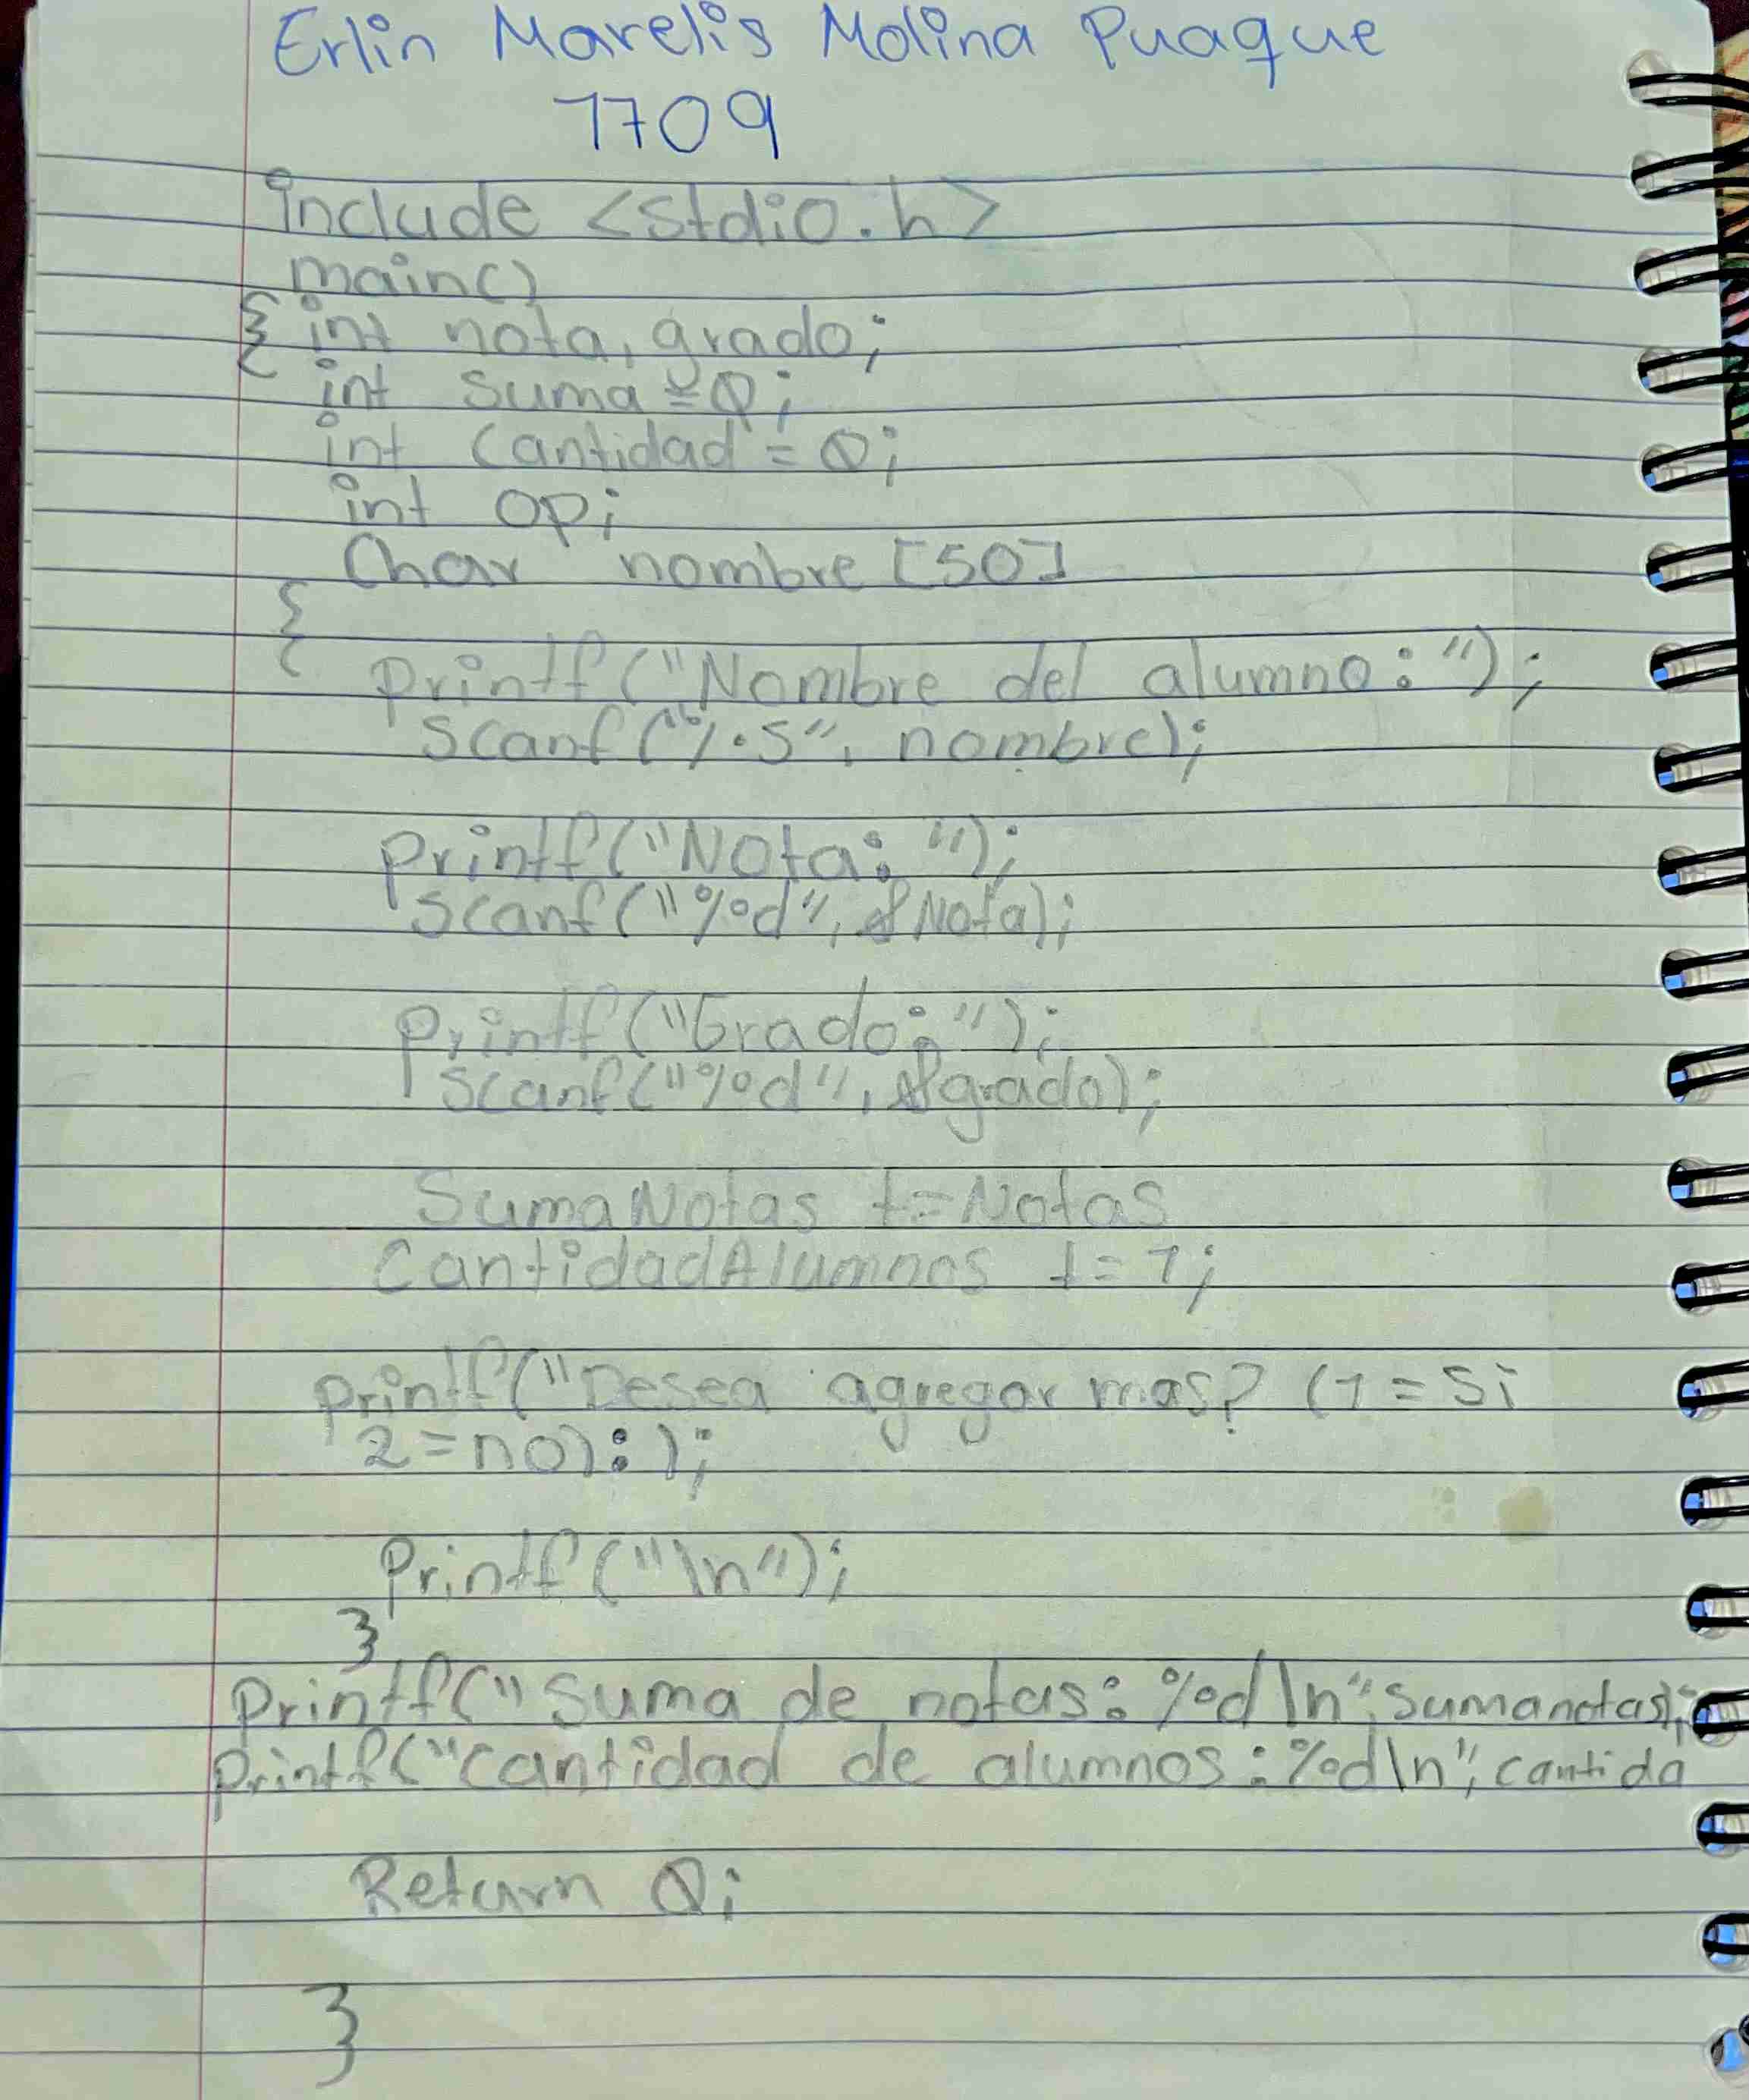 Erlin Marelis Molina Puaque
1709
include <stdio.h>
main()
{ int nota, grado;
int suma = 0;
int cantidad = 0;
int op;
Char nombre [50]
{
printf("Nombre del alumno: ");
scanf("%s", nombre);
printf("Nota: ");
scanf("%d", &Nota);
printf("Grado: ");
scanf("%d", &grado);
SumaNotas += Notas
CantidadAlumnos += 1;
printf("Desea agregar mas? (1 = Si
2 = no): );
Printf("\n");
}
Printf("Suma de notas: %d\n", sumanotas);
printf("cantidad de alumnos: %d\n", cantida
Return 0;
}